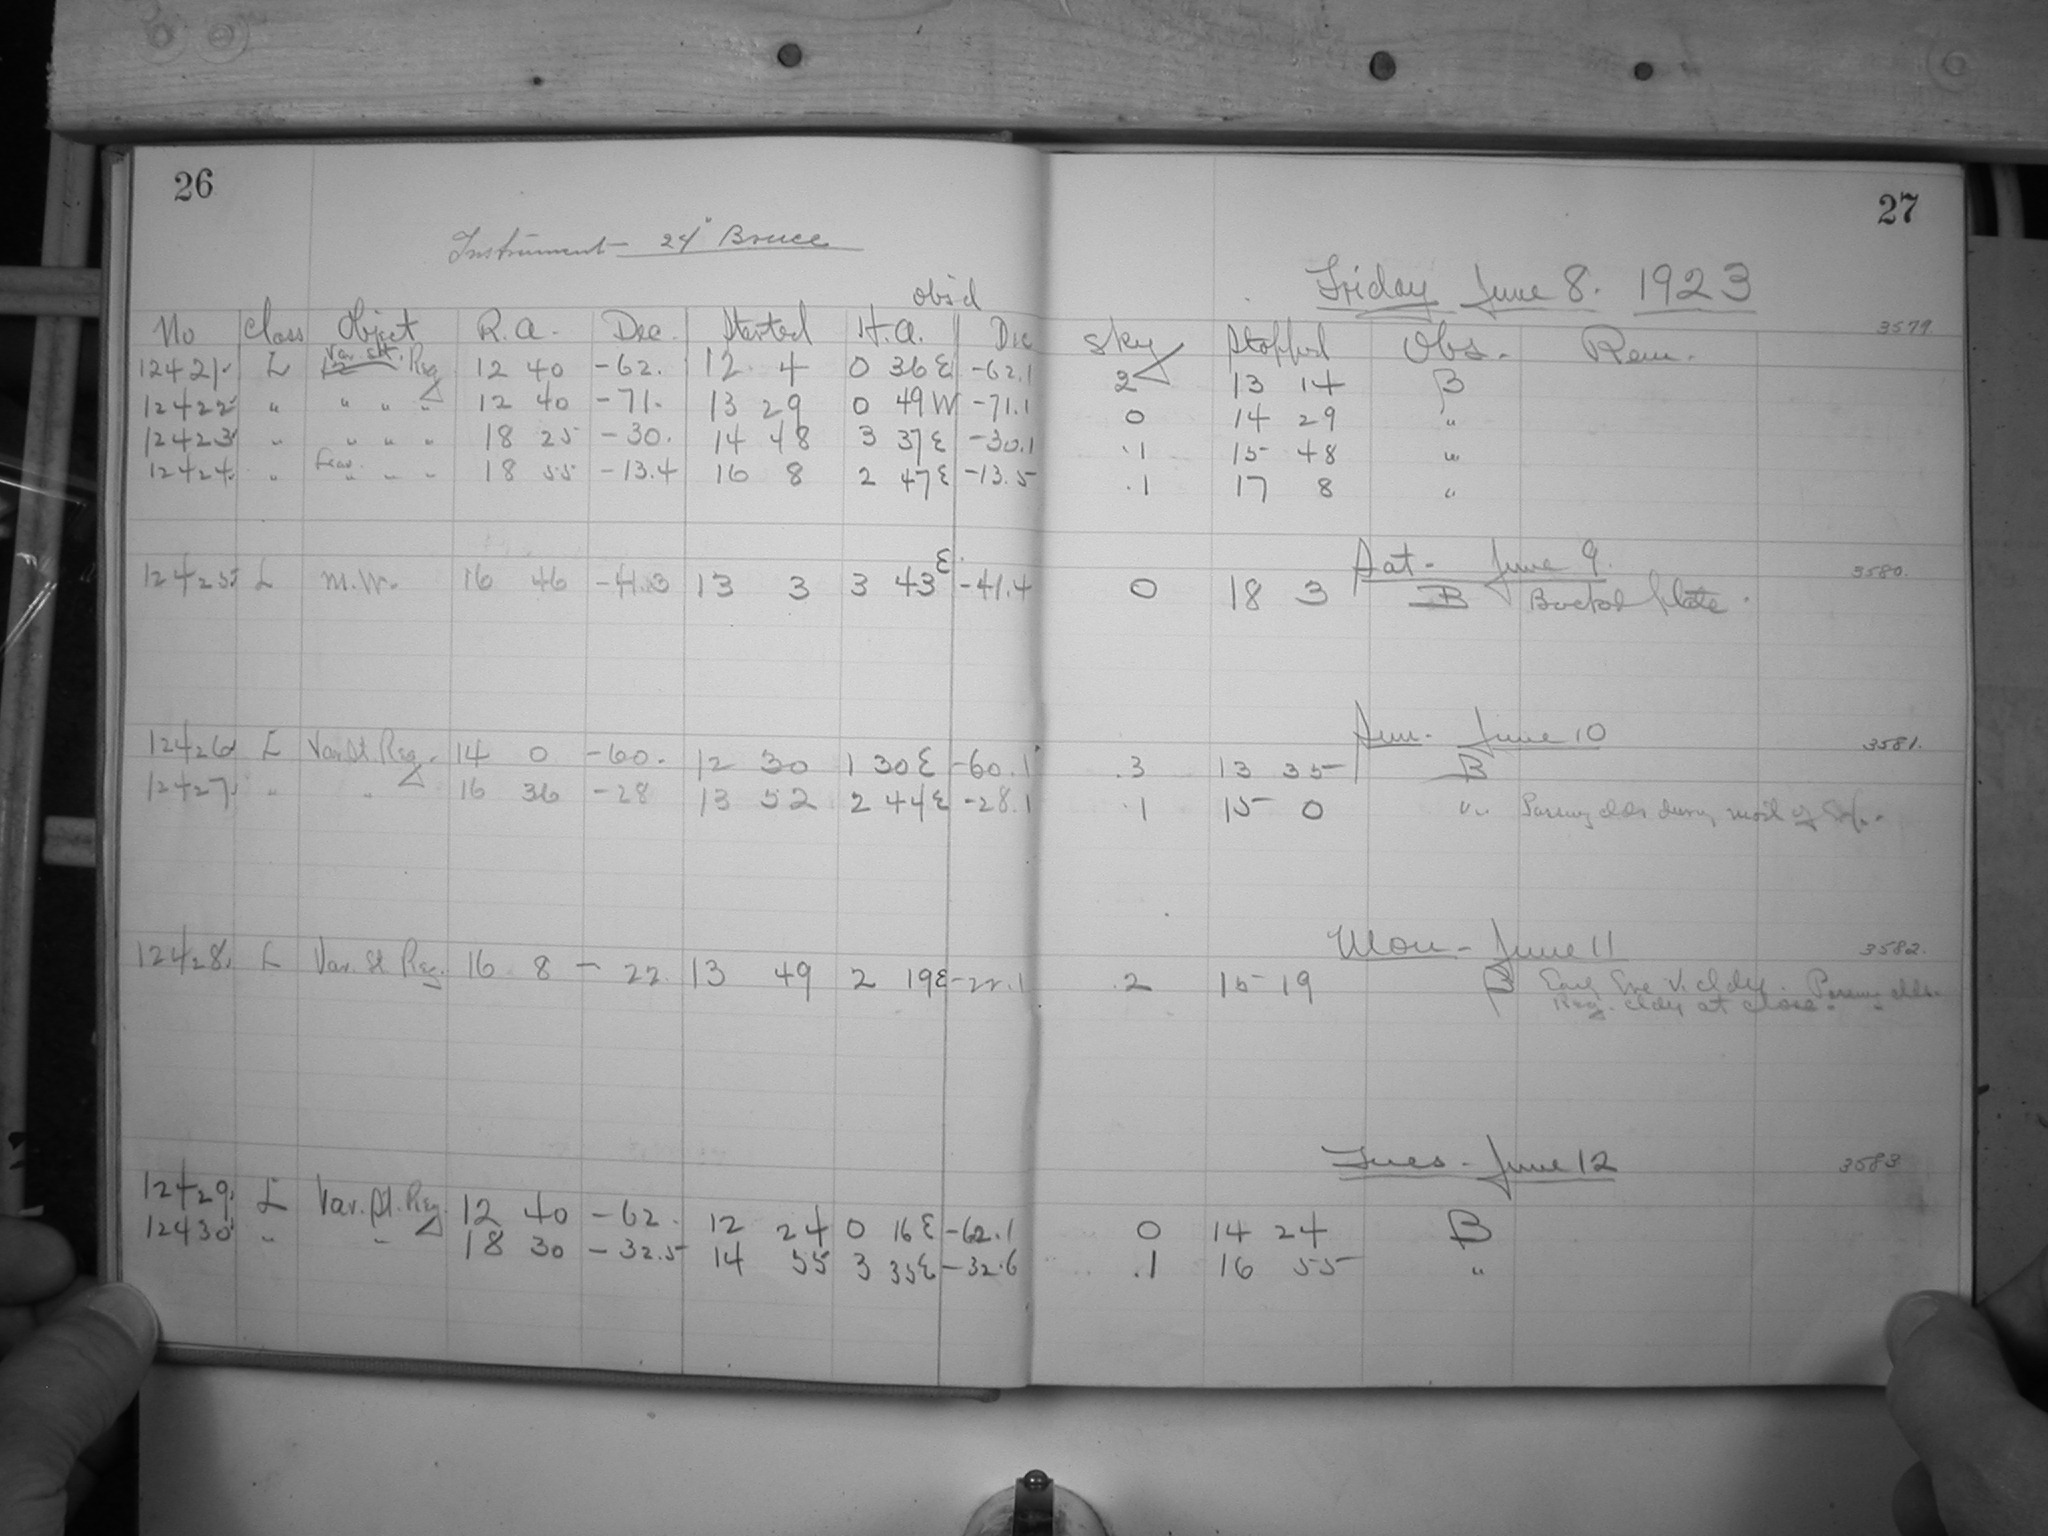 26
27
Instrument - 24" Bruce
Friday June 8. 1923
3579
obs'd
No Class Object R.A. Dec. Started H.A. Dec Sky Stopped Obs. Rem.
12421 L Var. St. Reg 12 40 -62. 12 4 0 36 E -62.1 2 13 14 B
12422 " " " " 12 40 -71. 13 29 0 49 W -71.1 0 14 29 "
12423 " " " " 18 25 -30. 14 48 3 37 E -30.1 .1 15 48 "
12424 " " " " 18 55 -13.4 16 8 2 47 E -13.5 .1 17 8 "
Sat - June 9. 3580.
12425 L M.W. 16 46 -41.3 13 3 3 43 E -41.4 0 18 3 B Backed Plate.
Sun - June 10 3581.
12426 L Var. St. Reg. 14 0 -60. 12 30 1 30 E -60.1 .3 13 35 B
12427 " " 16 36 -28 13 52 2 44 E -28.1 .1 15 0 " Passing clds during most of
Mon - June 11 3582.
12428. L Var. St Reg. 16 8 - 22. 13 49 2 19 E -22.1 .2 15 19 B Early Eve v. cldy. Passing clds.
Reg. cldy at close.
Tues - June 12 3583
12429. L Var. St. Reg. 12 40 -62. 12 24 0 16 E -62.1 0 14 24 B
12430 " " 18 30 -32.5 14 55 3 35 E -32.6 .1 16 55 "